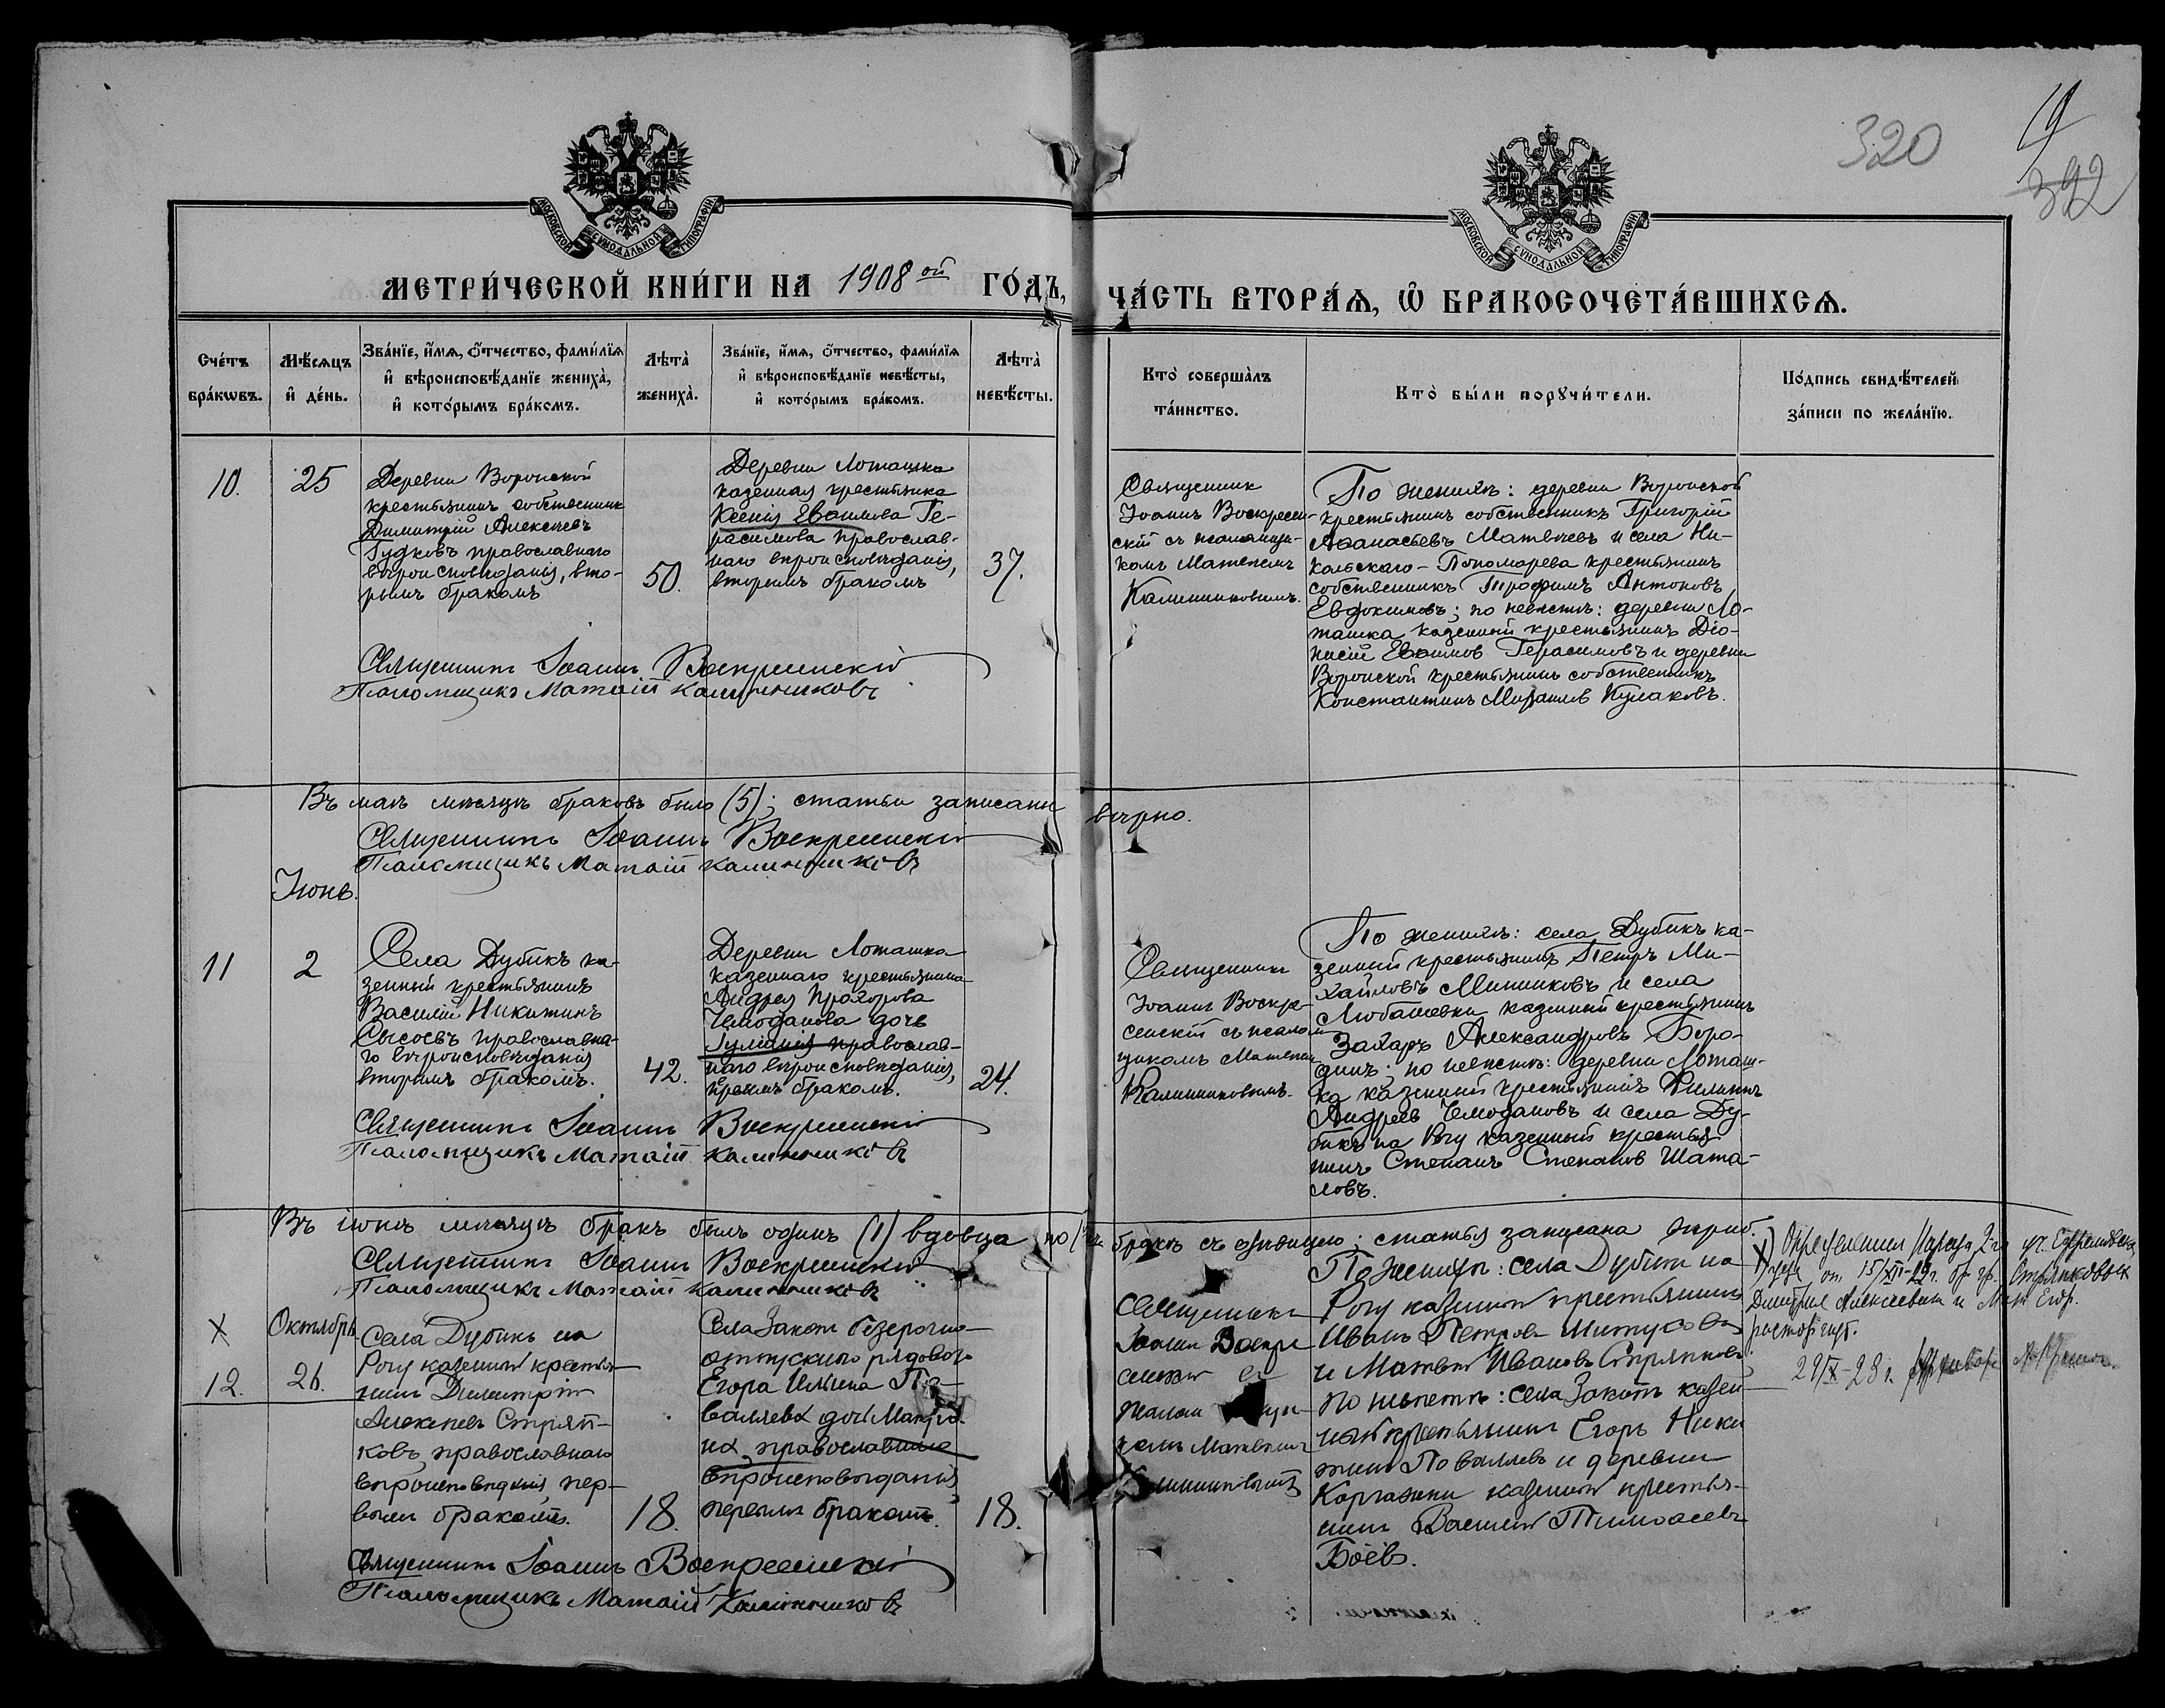 320
9
392
МОСКОВСКОЙ СѴНОДАЛЬНОЙ ТИПОГРАФІИ
МОСКОВСКОЙ СѴНОДАЛЬНОЙ ТИПОГРАФІИ
МЕТРИ́ЧЕСКОЙ КНИ́ГИ НА 1908ой ГО́ДЪ, ЧА́СТЬ ВТОРА́Ѧ, Ѽ БРАКОСОЧЕТА́ВШИХСѦ.
Сче́тъ
бра́кѡвъ.
Мѣ́сѧцъ
и҆ де́нь.
Зва́нїе, и҆́мѧ, ѻ҆́тчество, фами́лїѧ
и҆ вѣроисповѣ́данїе жениха̀,
и҆ кото́рымъ бра́комъ.
Лѣ́та̀
жениха̀.
Зва́нїе, и҆́мѧ, ѻ҆́тчество, фами́лїѧ
и҆ вѣроисповѣ́данїе невѣ́сты,
и҆ кото́рымъ бра́комъ.
Лѣ́та̀
невѣ́сты.
Кто̀ соверша́лъ
та́инство.
Кто̀ бы́ли порꙋчи́тели.
По́дпись свидѣ́телей
за́писи по жела́нїю.
10.
25
Деревни Воронской
крестьянинъ собственникъ
Димитрій Алексѣевъ
Гудковъ православнаго
вѣроисповѣданія, вто-
рымъ бракомъ
50.
Деревни Лоташка
казенная крестьянка
Ксенія Евѳимова Ге-
расимова православ-
наго вѣроисповѣданія,
вторымъ бракомъ
37.
Священник
Іоаннъ Воскресен-
скій съ псаломщи-
комъ Матѳеемъ
Калинниковымъ.
По женихѣ: деревни Воронской
крестьянинъ собственникъ Григорій
Аѳанасьевъ Матвѣевъ и села Ни-
кольскаго-Пономарева крестьянинъ
собственникъ Трофимъ Антоновъ
Евдокимовъ; по невѣстѣ: деревни Ло-
ташка казенный крестьянинъ Діо-
нисій Евѳимов Герасимовъ и деревни
Воронской крестьянинъ собственникъ
Константинъ Михаилов Кулаковъ.
Священникъ Іоаннъ Воскресенскій
Псаломщикъ Матѳій Калинниковъ
Въ маѣ мѣсяцѣ браковъ было (5); статьи записаны вѣрно.
Священникъ Іоаннъ Воскресенскій
Псаломщикъ Матѳій Калинниковъ
Іюнь.
11
2
Села Дубикъ ка-
зенный крестьянинъ
Василій Никитинъ
Сысоевъ православна-
го вѣроисповѣданія
вторымъ бракомъ.
42.
Деревни Лоташка
казеннаго крестьянина
Андрея Прохорова
Чемоданова дочь
Іуліанія православ-
наго вѣроисповѣданія,
первымъ бракомъ.
24.
Священникъ
Іоаннъ Воскре-
сенскій съ псалом
щикомъ Матѳеем
Калинниковымъ.
По женихѣ: села Дубикъ ка-
зенный крестьянинъ Петръ Ми-
хайловъ Минниковъ и села
Любашевки казенный крестьянинъ
Захаръ Александровъ Боро-
динъ; по невѣстѣ: деревни Лоташ-
ка казенный крестьянинъ Филиппъ
Андреев Чемодановъ и села Ду-
бикъ на Рогу казенный крестья
нинъ Степанъ Степанов Шата-
ловъ.
Священникъ Іоаннъ Воскресенскій
Псаломщикъ Матѳій Калинниковъ
Въ іюнѣ мѣсяцѣ бракъ былъ одинъ (1) вдовца бракѣ съ дѣвицею; статья записана вѣрно.
Священникъ Іоаннъ Воскресенскій
Псаломщикъ Матѳій Калинниковъ
Х
Октябрь
12.
26.
Села Дубикъ на
Рогу казенный крестья
нинъ Димитрій
Алексѣевъ Стряп-
ковъ, православнаго
вѣроисповѣданія, пер-
вымъ бракомъ.
18.
Села Закопы безсрочно-
отпускного рядового
Егора Ильина По-
валяева дочь Матро-
на православнаго
вѣроисповѣданія,
первымъ бракомъ.
18.
Священникъ
Іоаннъ Воскре
сенскій съ
псалом
комъ Матѳеемъ
По женихѣ: села Дубики на
Рогу казенный крестьянинъ
Иванъ Петровъ
и Матвѣй Ивановъ Стряпковъ;
по невѣстѣ: села Закопы казен-
ный крестьянинъ Егоръ Ники
тинъ Поваляевъ и деревни
казенный крестья-
нинъ Василій Тимоѳеевъ
Боевъ.
Х) Нарсуда 2-го уч. Ефремовск.
уезда от 15/XII-22г. бр. гр. Стряпковых
Дмитрия Алексеевича и Мат. Егор.
расторгнут.
29/X-23 г.
Священникъ Іоаннъ Воскресенскій
Псаломщикъ Матѳій Калинниковъ